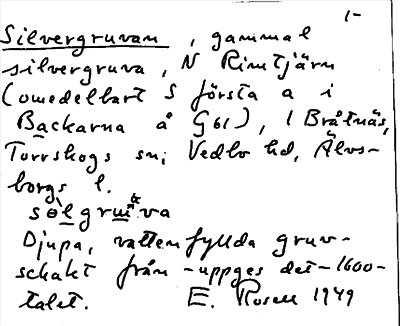 1-
Silvergruvan, gammal
silvergruva, N Rimtjärn
(omedelbart S första a i
Backarna å G61), i Bråtnäs,
Torrskogs sn, Vedbo hd, Älvs-
borgs l.
Djupa, vattenfyllda gruv-
schakt från - uppges det - 1600-
talet. E. Rosell 1949